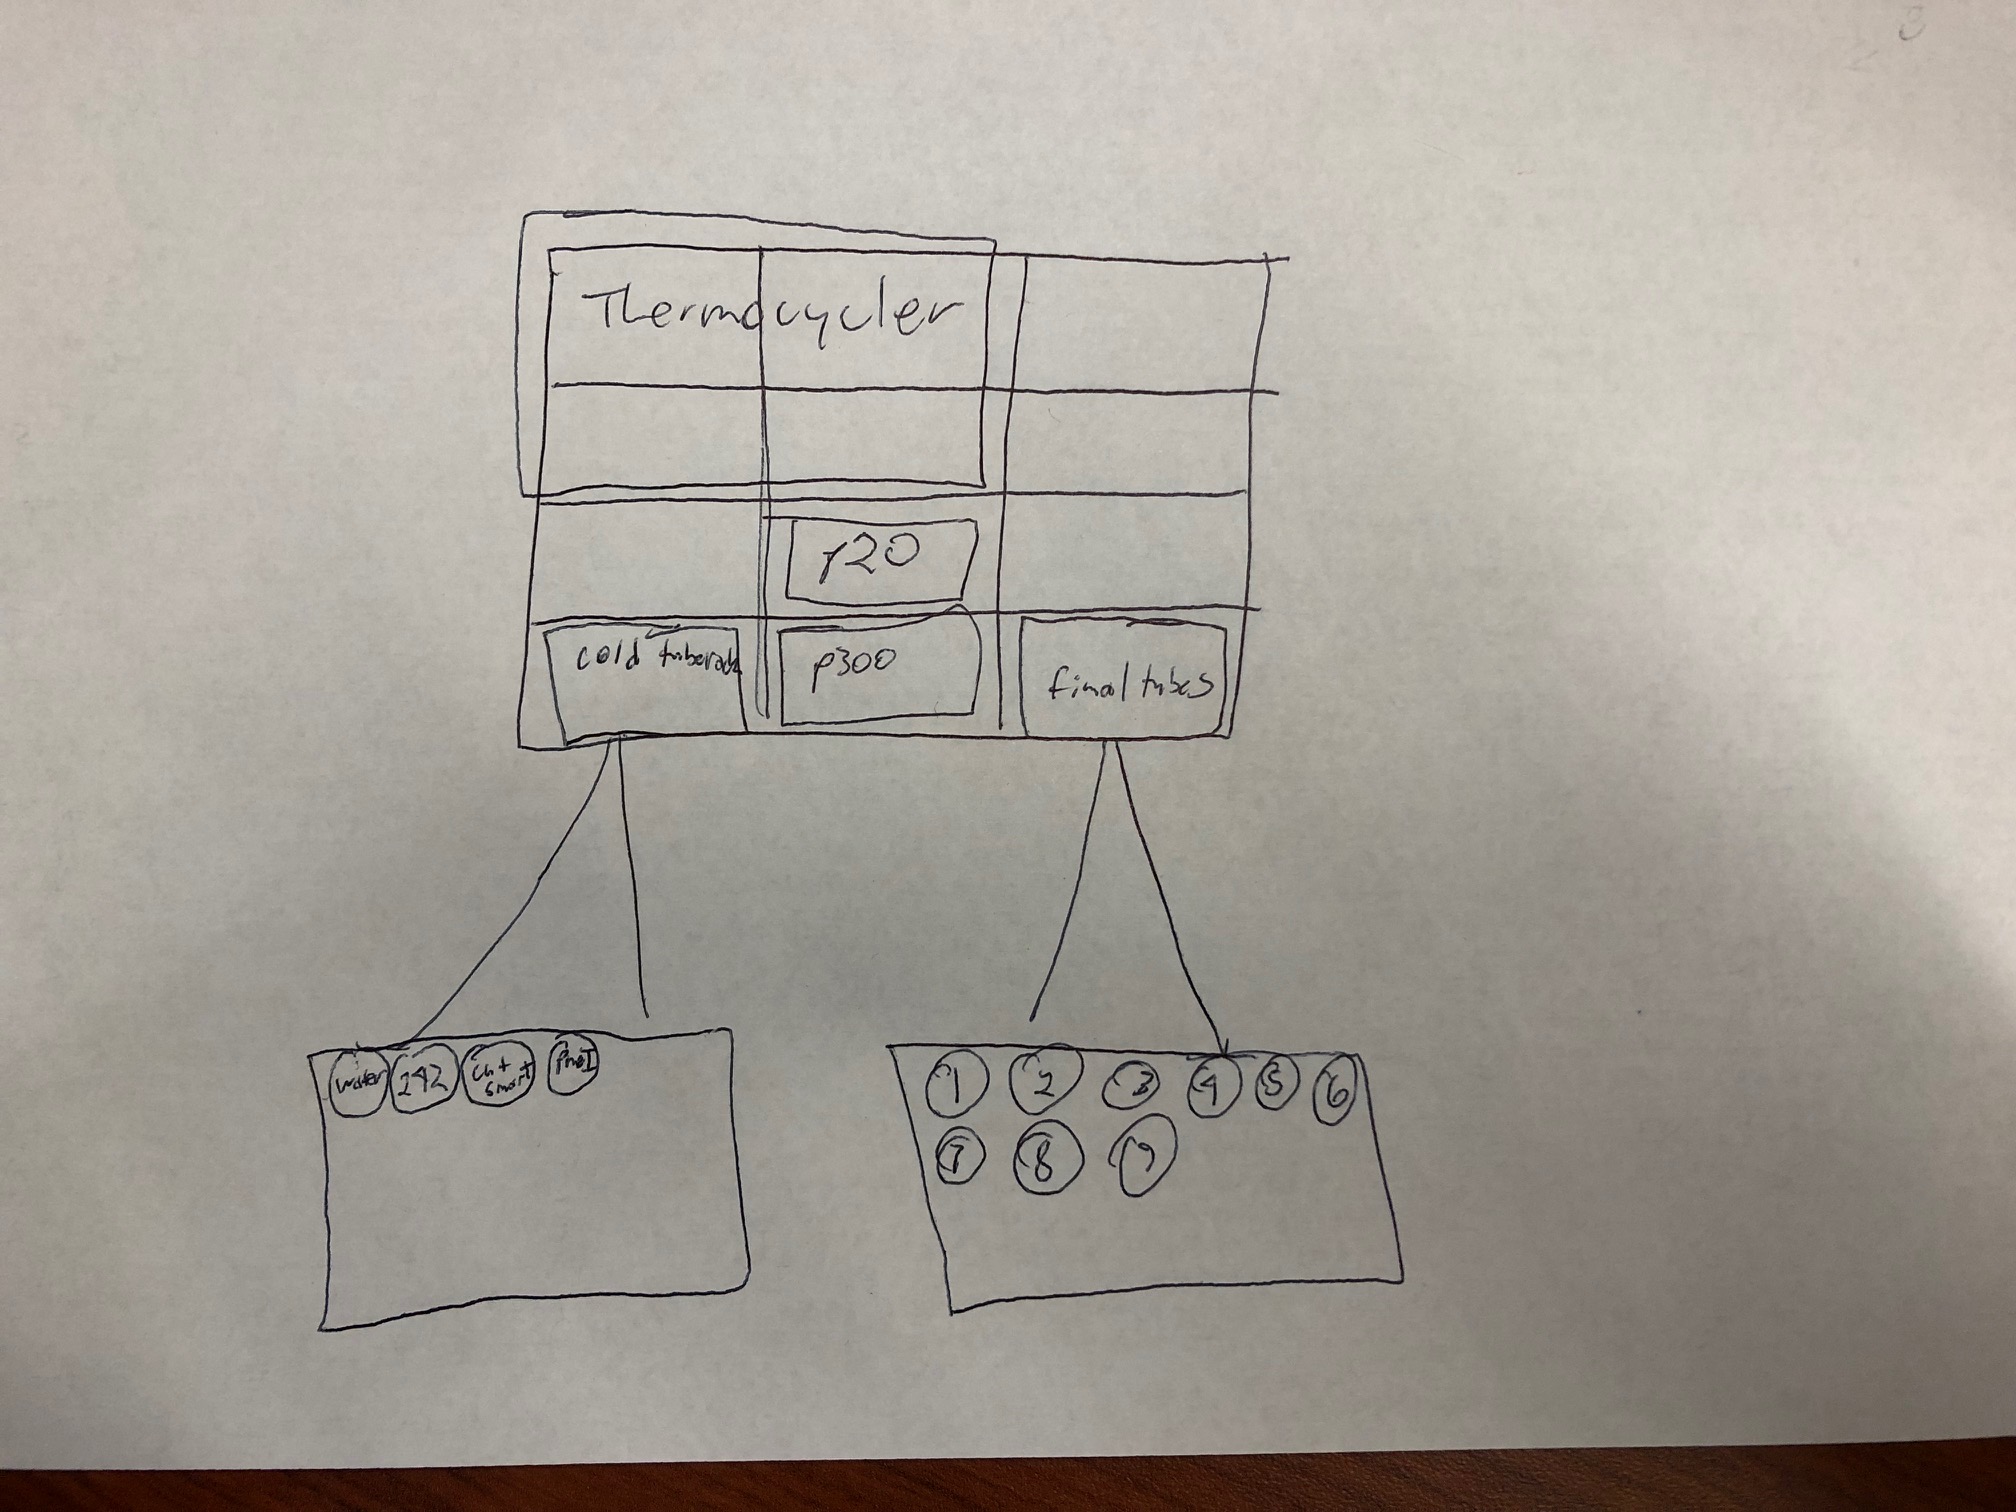 Thermocycler
p20
cold tuberack
p300
final tubes
water 242 Cut Smart PmeI
1 2 3 4 5 6
7 8 9